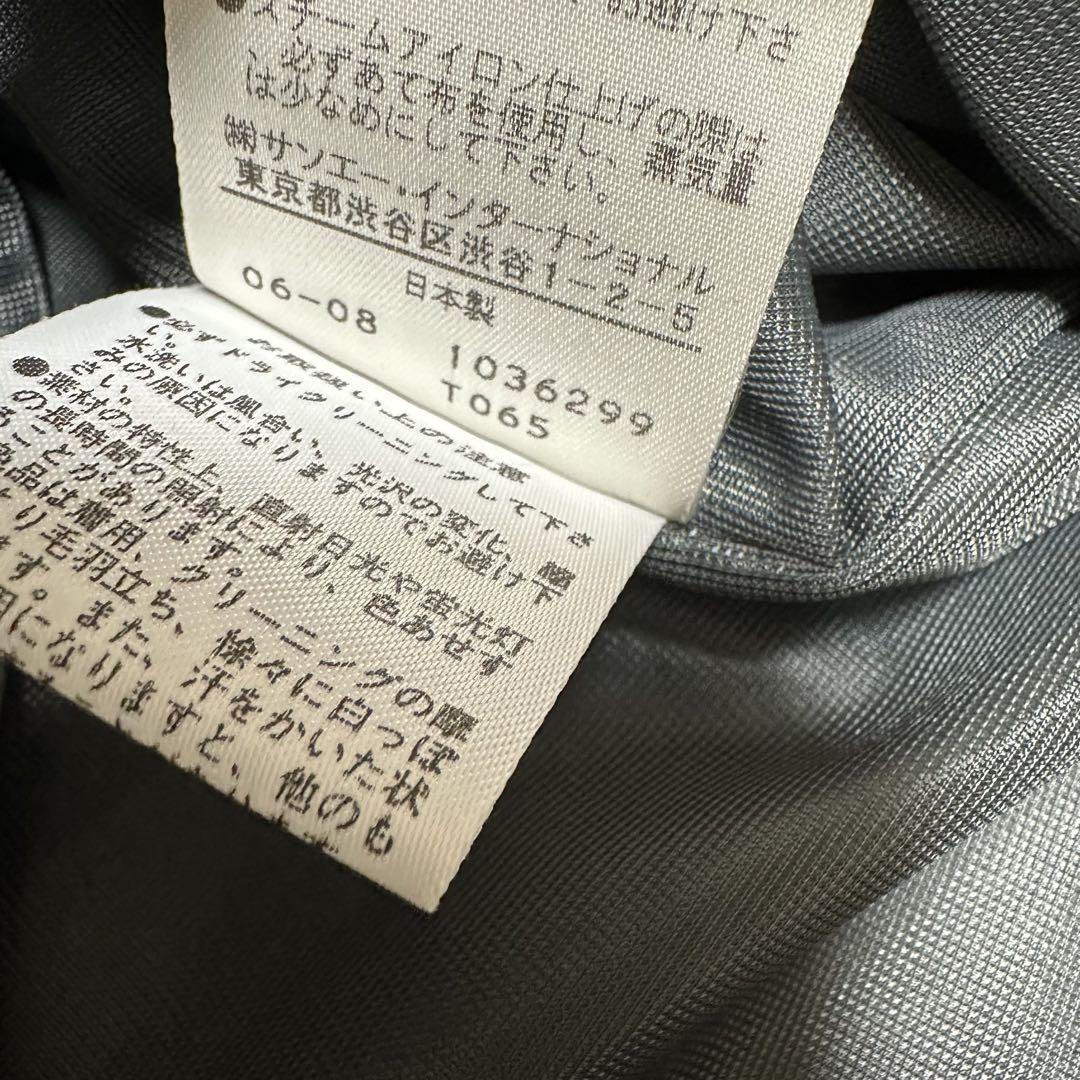 お避け下さ
●スチームアイロン仕上げの際は
必ずあて布を使用し、蒸気量
は少なめにして下さい。
㈱サンエー・インターナショナル
東京都渋谷区渋谷1-2-5
日本製
06-08
1036299
T065
お取扱い上の注意
●必ずドライクリーニングして下さ
い。
水洗いは風合い、光沢の変化、縮
みの原因になりますのでお避け下
さい。
●素材の特性上、直射日光や蛍光灯
の長時間の照射により、色あせす
ることがあります。
品は着用、クリーニングの摩
り毛羽立ち、除々に白っぽ
ます。また、汗をかいた状
用になりますと、他のも